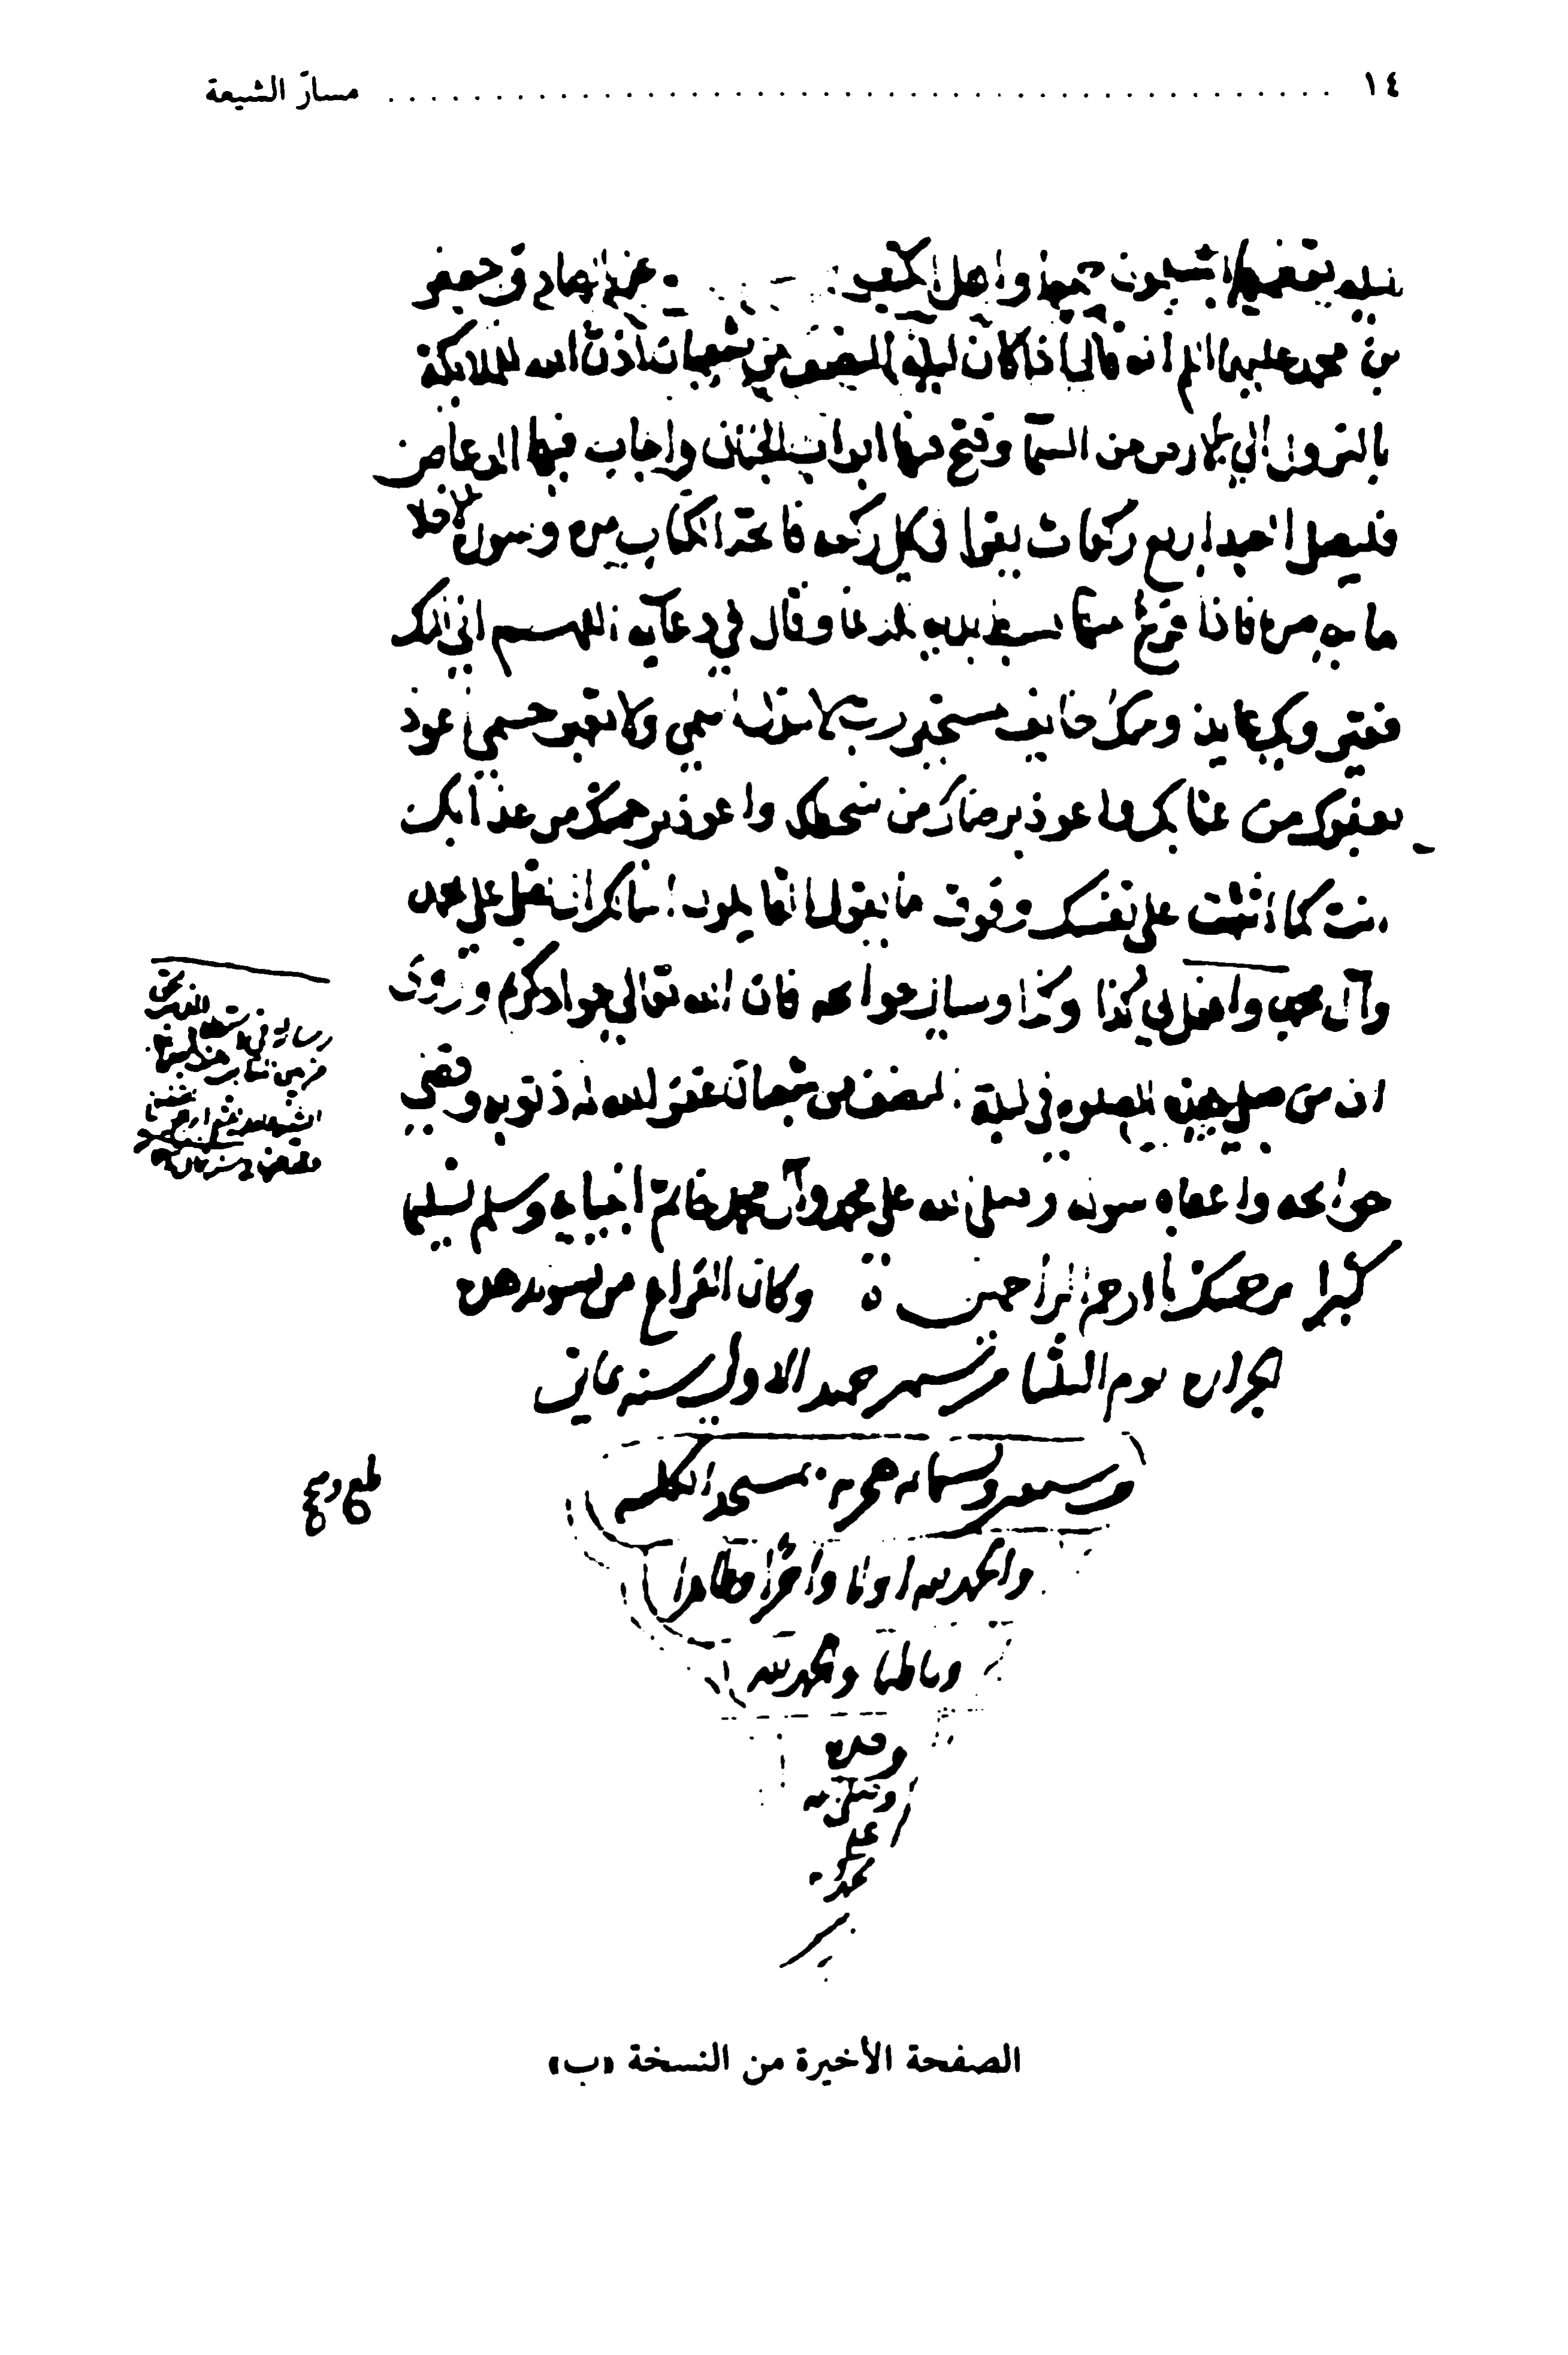 ١٤ ........ مسارّ الشيعة
واهل الكهف عن الصادق جعفر
بن محمد عليهما السلم انه قال اذا كان ليلة النصف من شعبان اذن الله للملائكة
بالنزول الى الارض من السما وفتح فيها ابواب الجنان واجاب فيها الدعا فمن
فليصل احدا اربع ركعات يقرا في كل ركعه فاتحة الكتاب مره وسورة الاخلا
مايه مره فاذا فرغ منها بسط يديه للدعا وقال في دعائه اللهم اني اليك
فقير وبك عايذ ومنك خايف مستجير رب لا تبدل اسمي ولا تغير جسمي اعوذ
بعفوك من عقابك واعوذ برضاك من سخطك واعوذ برحمتك من عذابك
انت كما اثنيت على نفسك وفوق ما يقول القايلون اسالك ان تصلي على محمد
وآل محمد وافعل بي كذا وكذا وساير حوايجه فان الله تعالى جواد كريم وروي
ان من صلى هذه الصلوه في ليلة النصف من شعبان غفر الله له ذنوبه وقضى
حوايجه واعطاه سوله وصلى الله على محمد وآل محمد خاتم انبيايه وسلم تسليما
كثيرا برحمتك يا ارحم الراحمين وكان الفراغ من تسويد هذه
يوم الثلثا من شهر جمد الاول سنه ثمانى
وسبعين وتسمائه هجريه
والحمد لله اولا واخرا وظاهرا
وباطنا والحمد لله
وحده
على
محمد
الصفحة الأخيرة من النسخة «ب»